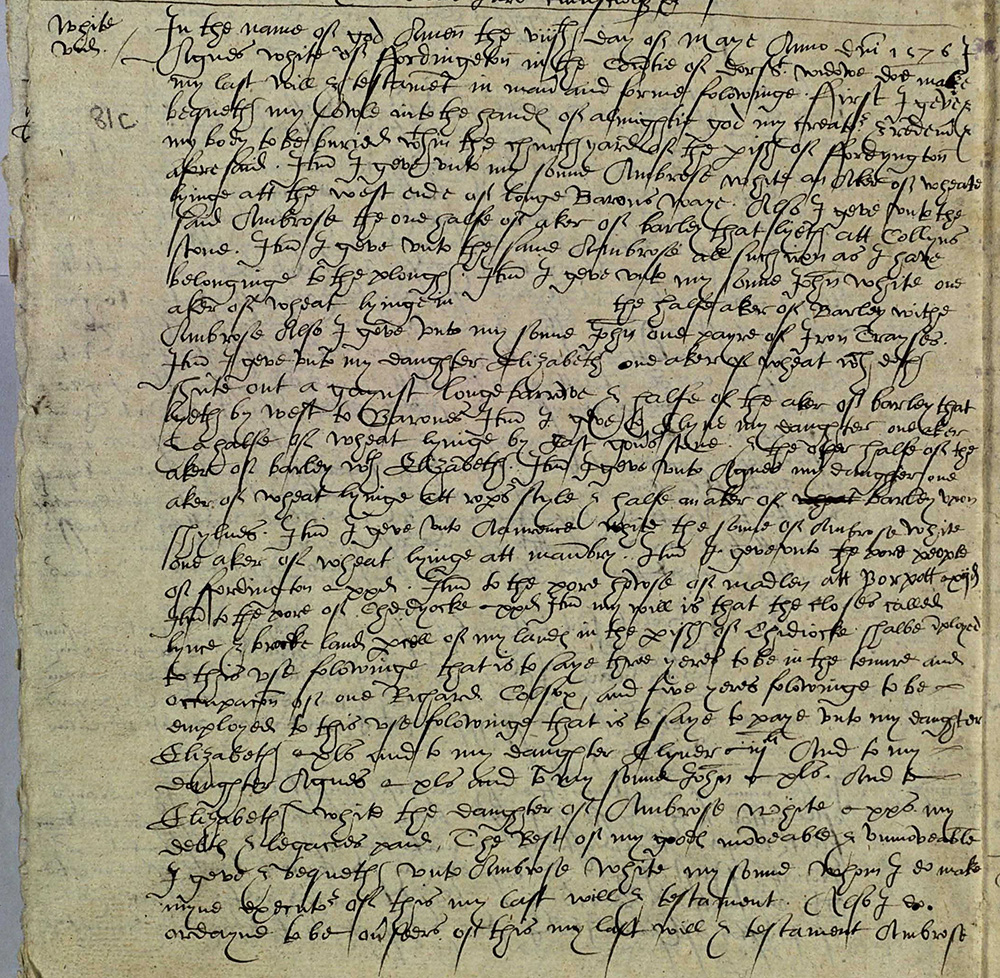 White
vid.
81C
In the name of god Amen the viijth day of Maye Anno dni 1576 I
Agnes White of ffordington in the Countie of Dorst widowe doe make
my last will & testamet in maner and forme followinge. ffirst I geve &
bequeth my Sowle into the hand of almightie god my creatr & redemr &
my body to be buried wthin the church yard of the pish of ffordyngton
aforesaid. Itm I geve unto my sonne Ambrose White an Aker of wheate
lyinge att the west ende of longe Barons waye. Also I geve unto the
said Ambrose the one halfe of aker of barley that lyeth att Collyns
stone. Itm I geve unto the same Ambrose all such iron as I have
belonginge to the plough. Itm I geve unto my sonne John White one
aker of wheat lyinge in the halfe aker of Barley withe
Ambrose Also I geve unto my sonne John one payre of Iron Trayses.
Itm I geve unto my daughter Elizabeth one aker of wheat wch doth
shute out a gaynst longe barrowe & halfe of the aker of barley that
lyeth by west to Barones Itm I geve to Elyne my daughter one aker
& halfe of wheat lyinge by stone. & the other halfe of the
aker of barley wth Elizabeth. Itm I geve unto Agnes my daughter one
aker of wheat lyinge att style & halfe an aker of wheat barley upon
shylnes. Itm I geve unto Laurence White the sonne of Ambrose White
one aker of wheat lyinge att maubry. Itm I geve unto the pore people
of fordington xxd. Itm to the pore howse of madlen att
Itm to the pore of Chedyocke xxd Itm my will is that the closes called
lynce & land pcell of my land in the pish of Chidiocke shalbe
to this use followinge that is to saye three yeres to be in the tenure and
occupacon of one Richard Colfox, and five yeres followinge to be
employed to this use followinge that is to saye to paye unto my daughter
Elizabeth xls and to my daughter Elyner iijli And to my
daughter Agnes xls and to my sonne John xls. And to
Elizabeth White the daughter of Ambrose White xxs my
debts & legacies paid, The Rest of my good moveable & unmoveable
I geve & bequeth unto Ambrose White my sonne whom I do make
myne executr of this my last will & testament. Also I do
ordayne to be ovseers of this my last will & testament Ambrose